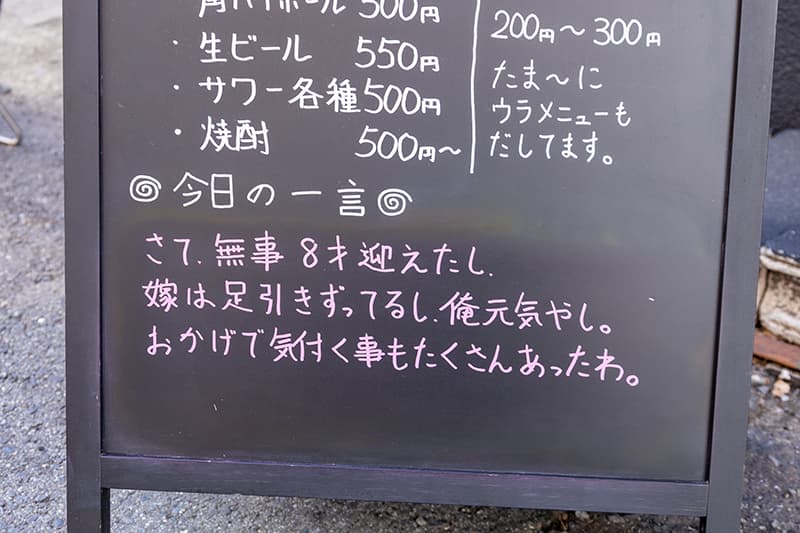 角ハイボール 500円
・生ビール 550円
・サワー各種 500円
・焼酎 500円〜
200円〜300円
たま〜に
ウラメニューも
だしてます。
今日の一言
さて、無事8才迎えたし、
嫁は足引きずってるし、俺元気やし。
おかげで気付く事もたくさんあったわ。